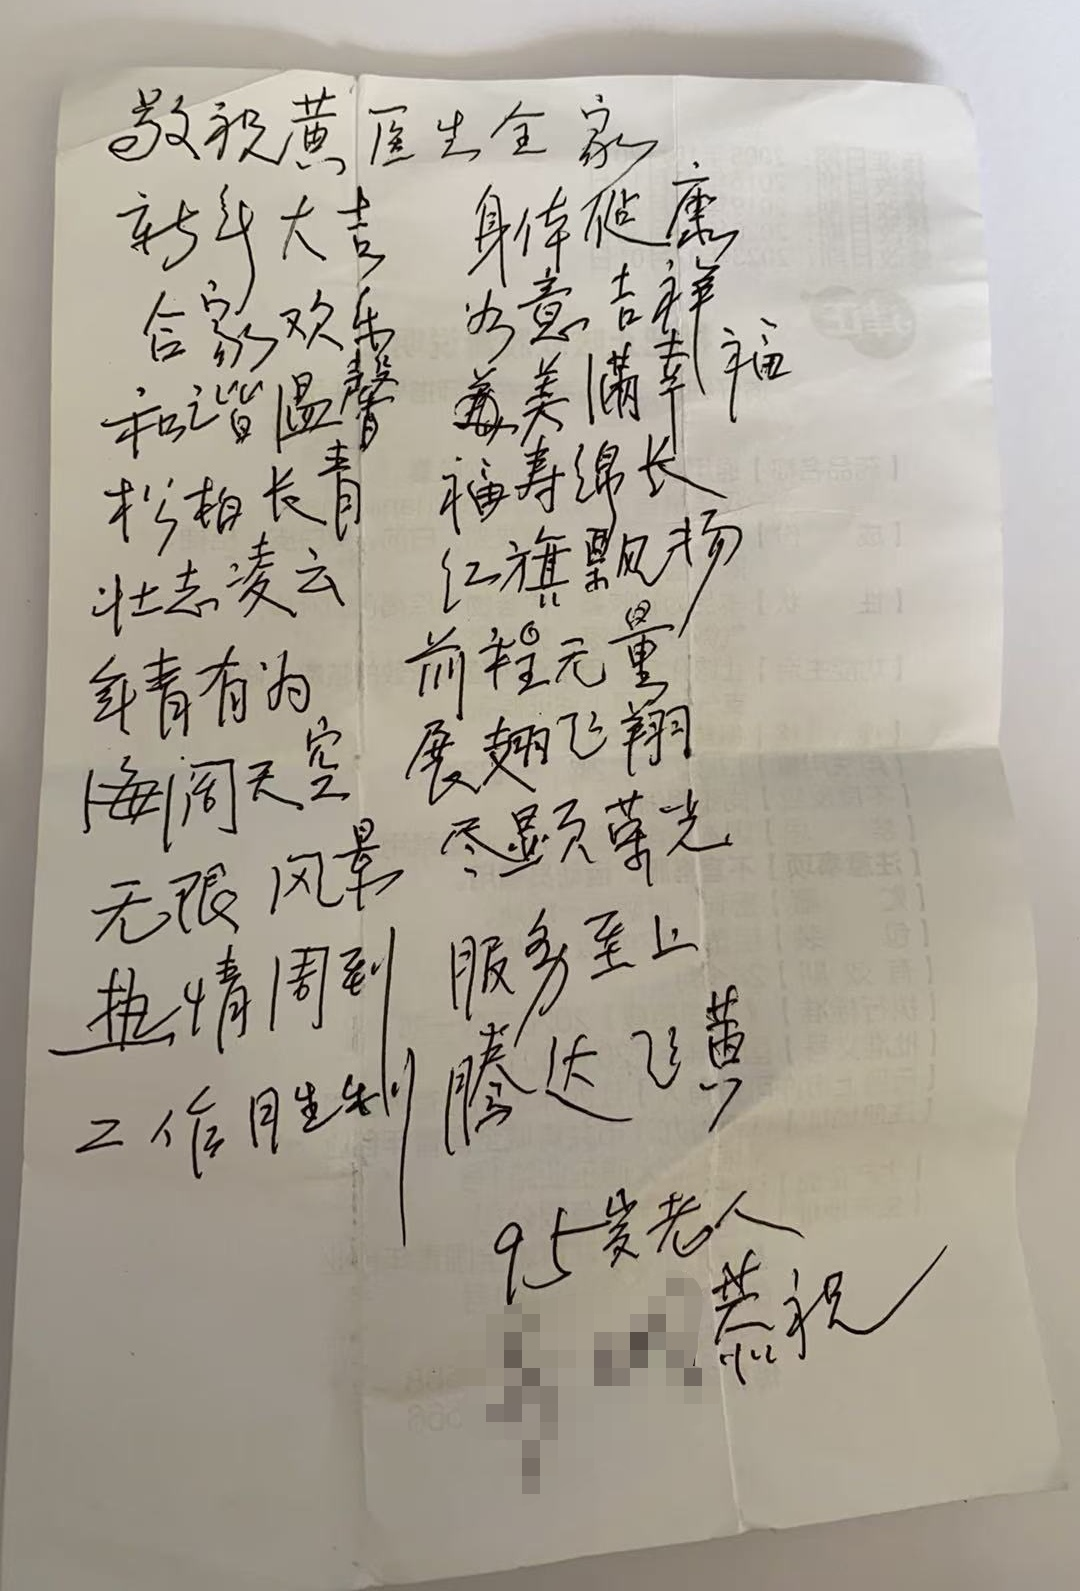 敬祝黄医生全家
新年大吉 身体健康
合家欢乐 如意吉祥
和谐温馨 美满幸福
松柏长青 福寿绵长
壮志凌云 红旗飘扬
年青有为 前程无量
海阔天空 展翅飞翔
无限风景 尽显荣光
热情周到 服务至上
工作胜利 腾达飞黄
95岁老人
恭祝